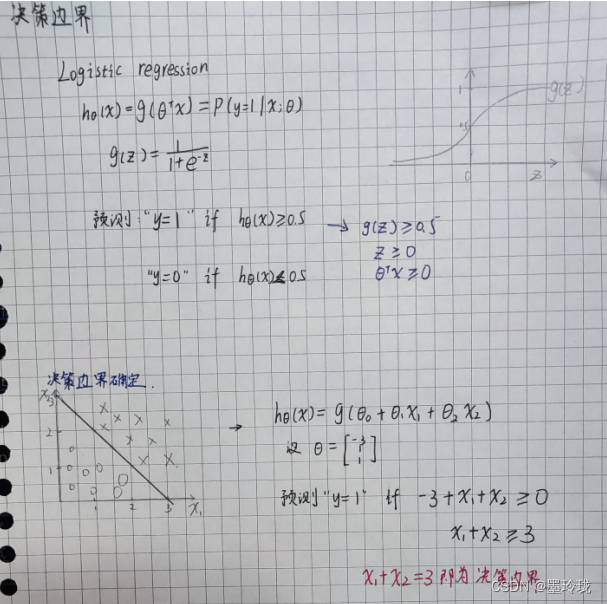 决策边界
Logistic regression
hθ(x)=g(θᵀx)=P(y=1|x;θ)
g(z)=1/(1+e^-z)
1
.5
0
g(z)
z
预测"y=1" if hθ(x)≥0.5 → g(z)≥0.5
z≥0
θᵀx≥0
"y=0" if hθ(x)<0.5
决策边界确定.
x₂
3
2
1
1 2 3 x₁
→ hθ(x)=g(θ₀+θ₁x₁+θ₂x₂)
设 θ=[-3 1 1]
预测"y=1" if -3+x₁+x₂≥0
x₁+x₂≥3
x₁+x₂=3 即为决策边界
CSDN @墨玲珑